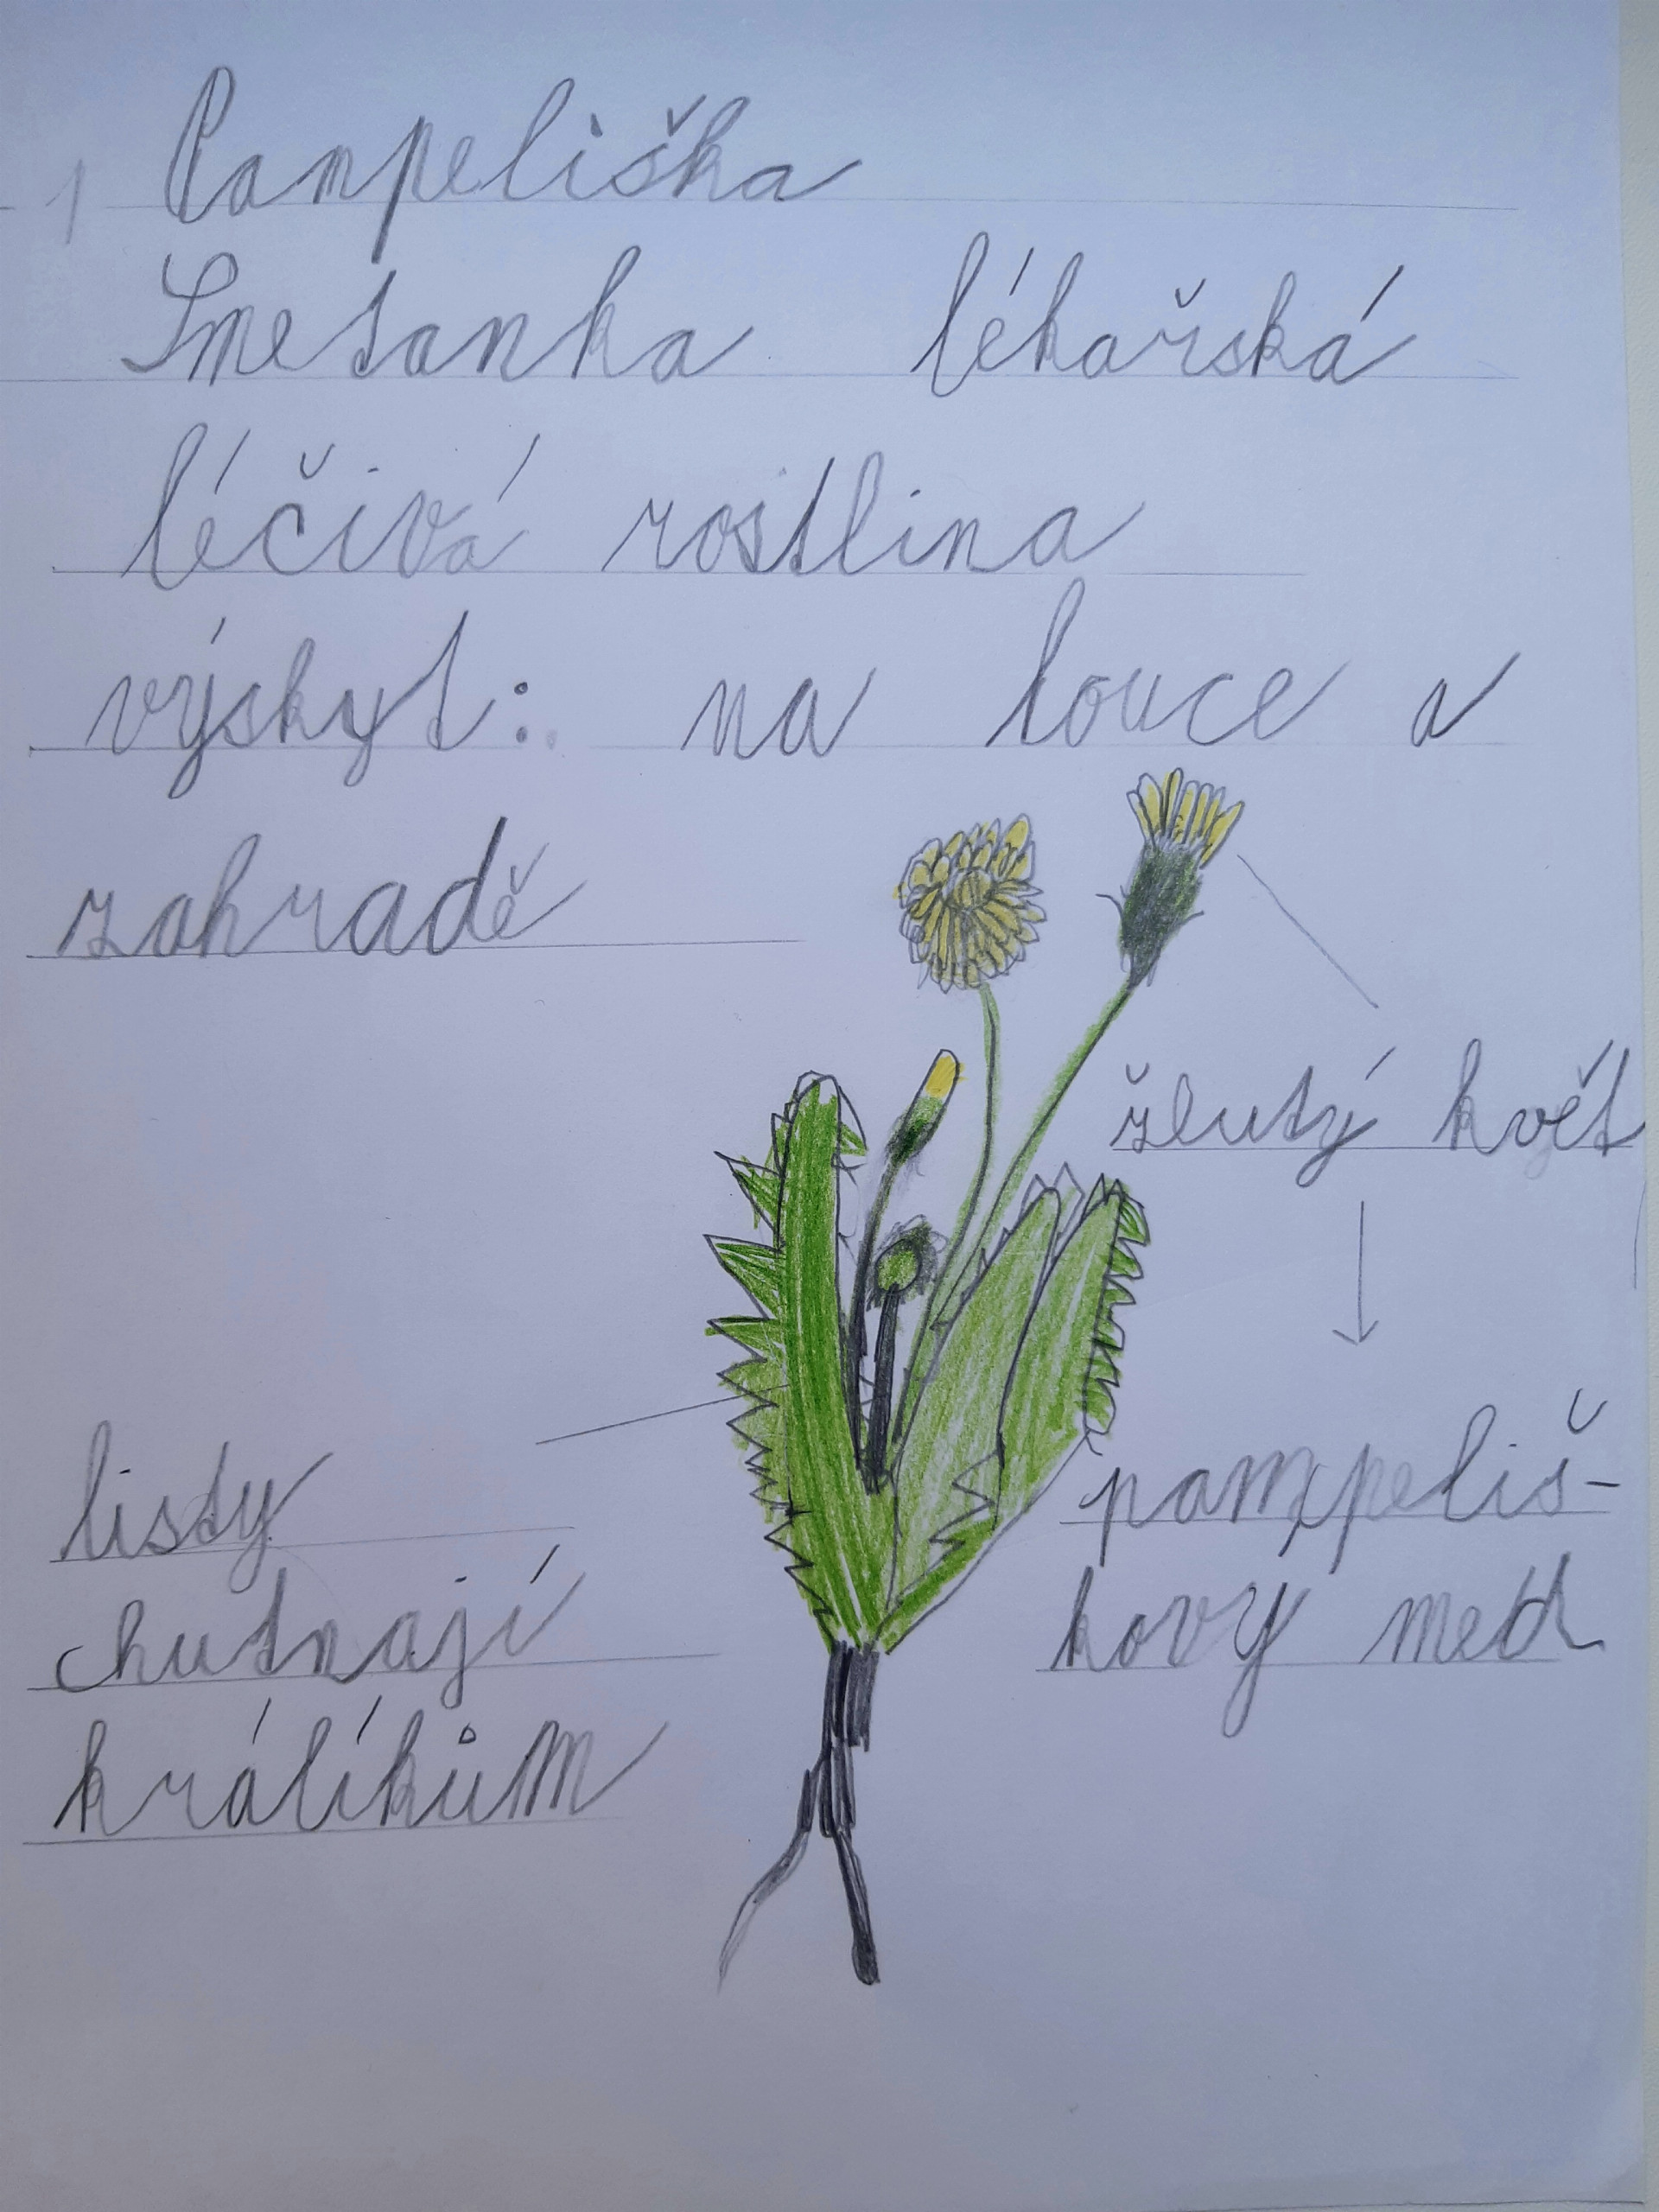 1 Pampeliška
Smetanka lékařská
léčivá rostlina
výskyt: na louce a
zahradě
žlutý květ
listy
chutnají
králíkům
pampeliš-
kovy med